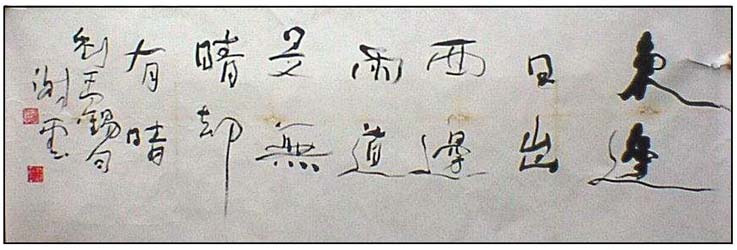 東邊
日出
西邊
雨道
是無
晴却
有晴
劉禹錫句
謝雲